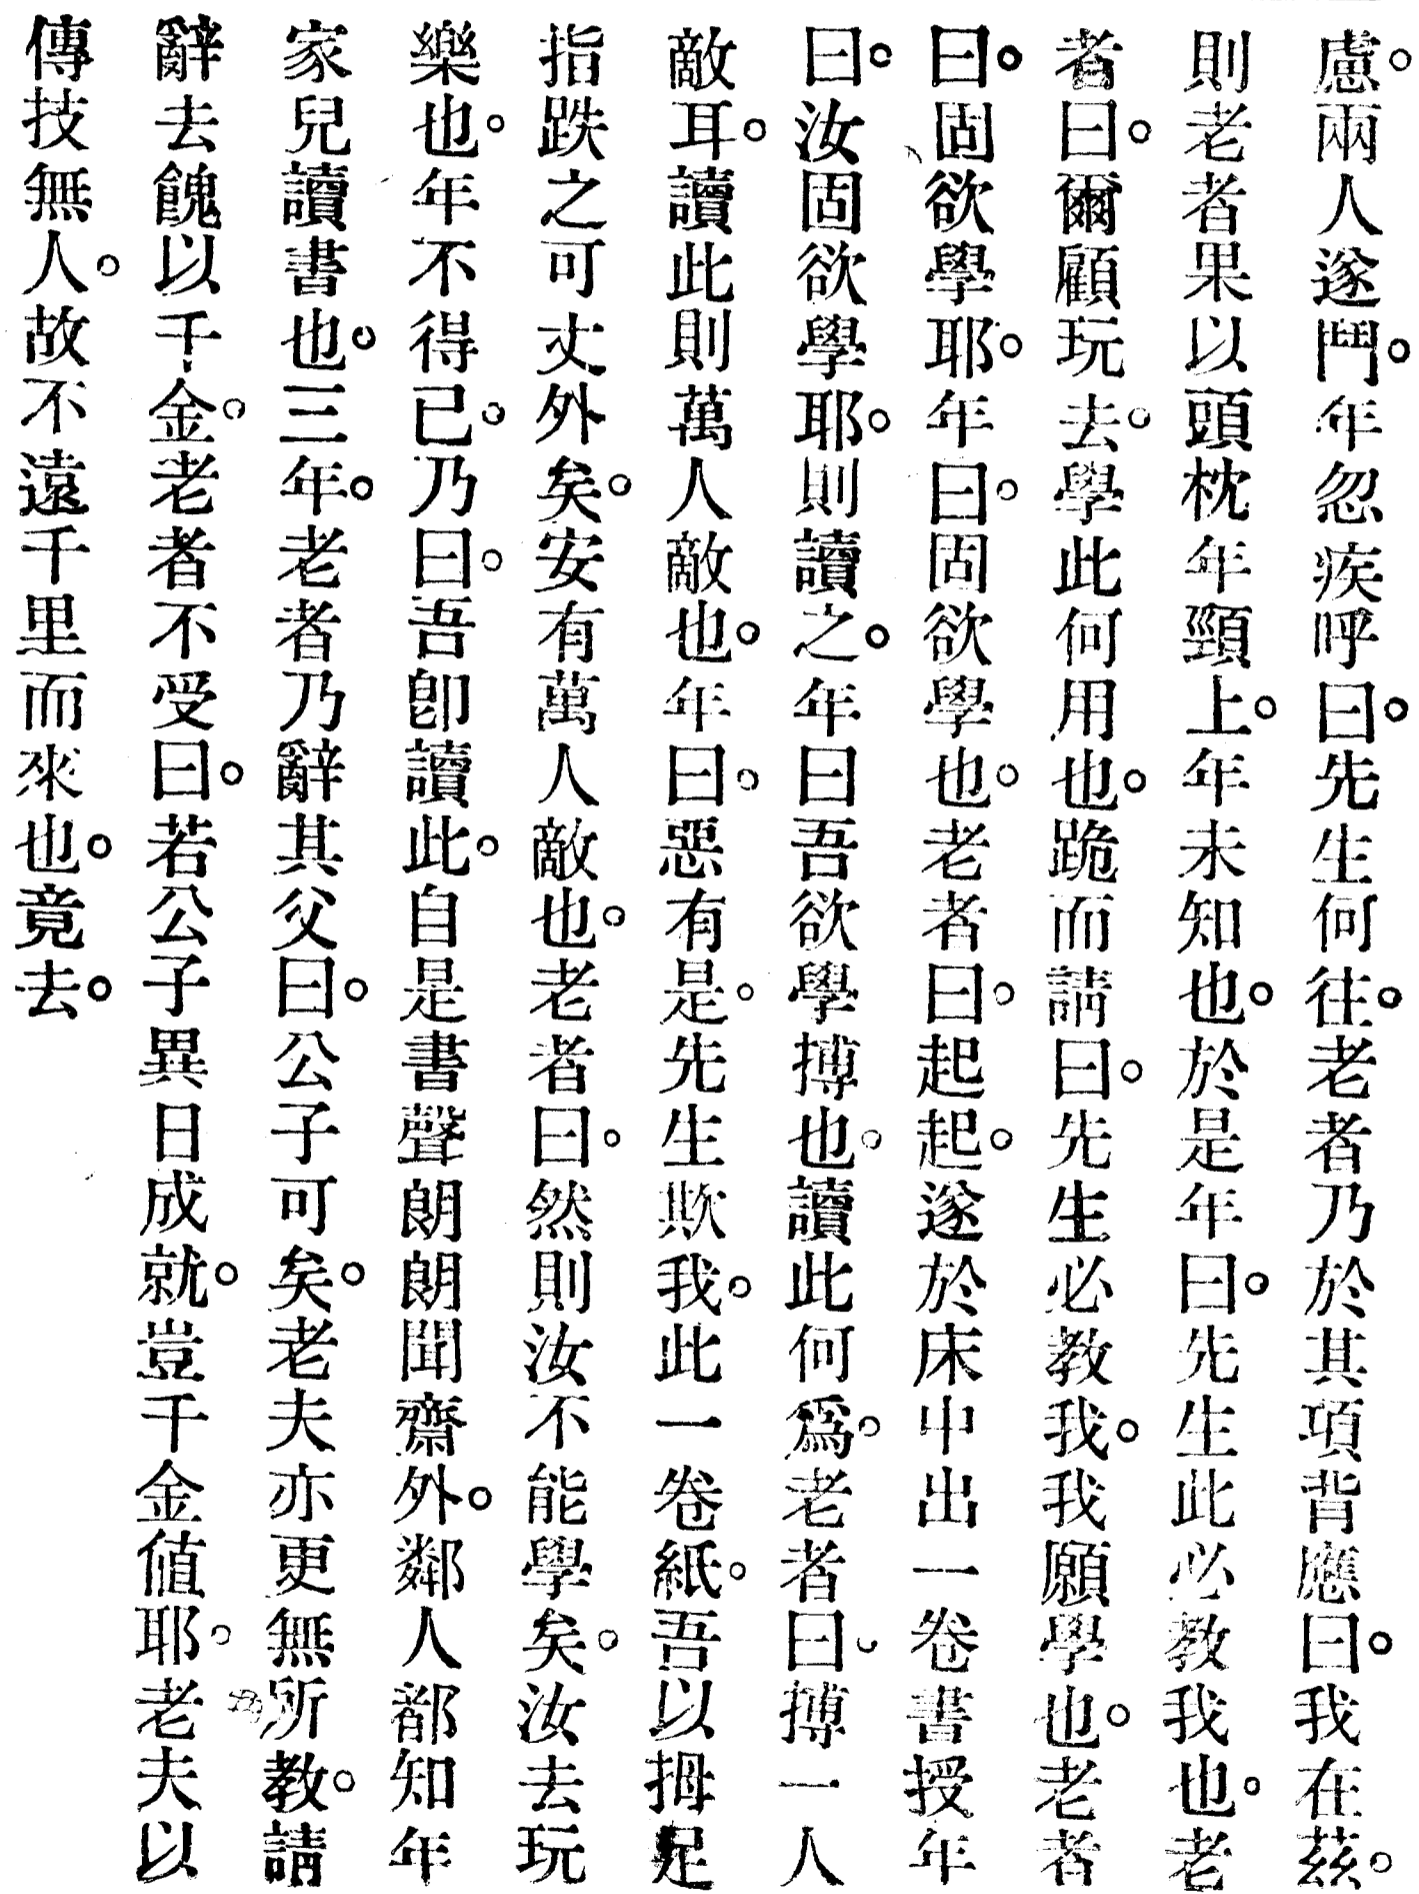 慮。兩人遂鬥。年忽疾呼曰。先生何往。老者乃於其項背應曰。我在茲。
則老者果以頭枕年頸上。年未知也。於是年曰。先生此必教我也。老
者曰。爾顧玩去。學此何用也。跪而請曰。先生必教我。我願學也。老者
曰。固欲學耶。年曰。固欲學也。老者曰。起起。遂於床中出一卷書授年
曰。汝固欲學耶。則讀之。年曰吾欲學搏也。讀此何爲。老者曰。搏一人
敵耳。讀此則萬人敵也。年曰。惡有是。先生欺我。此一卷紙。吾以拇足
指跌之可丈外矣。安有萬人敵也。老者曰。然則汝不能學矣。汝去玩
樂也。年不得已。乃曰。吾卽讀此。自是書聲朗朗聞齋外。鄰人都知年
家兒讀書也。三年。老者乃辭其父曰。公子可矣。老夫亦更無所教。請
辭去餽以千金。老者不受曰。若公子異日成就。豈千金値耶。老夫以
傳技無人。故不遠千里而來也。竟去。